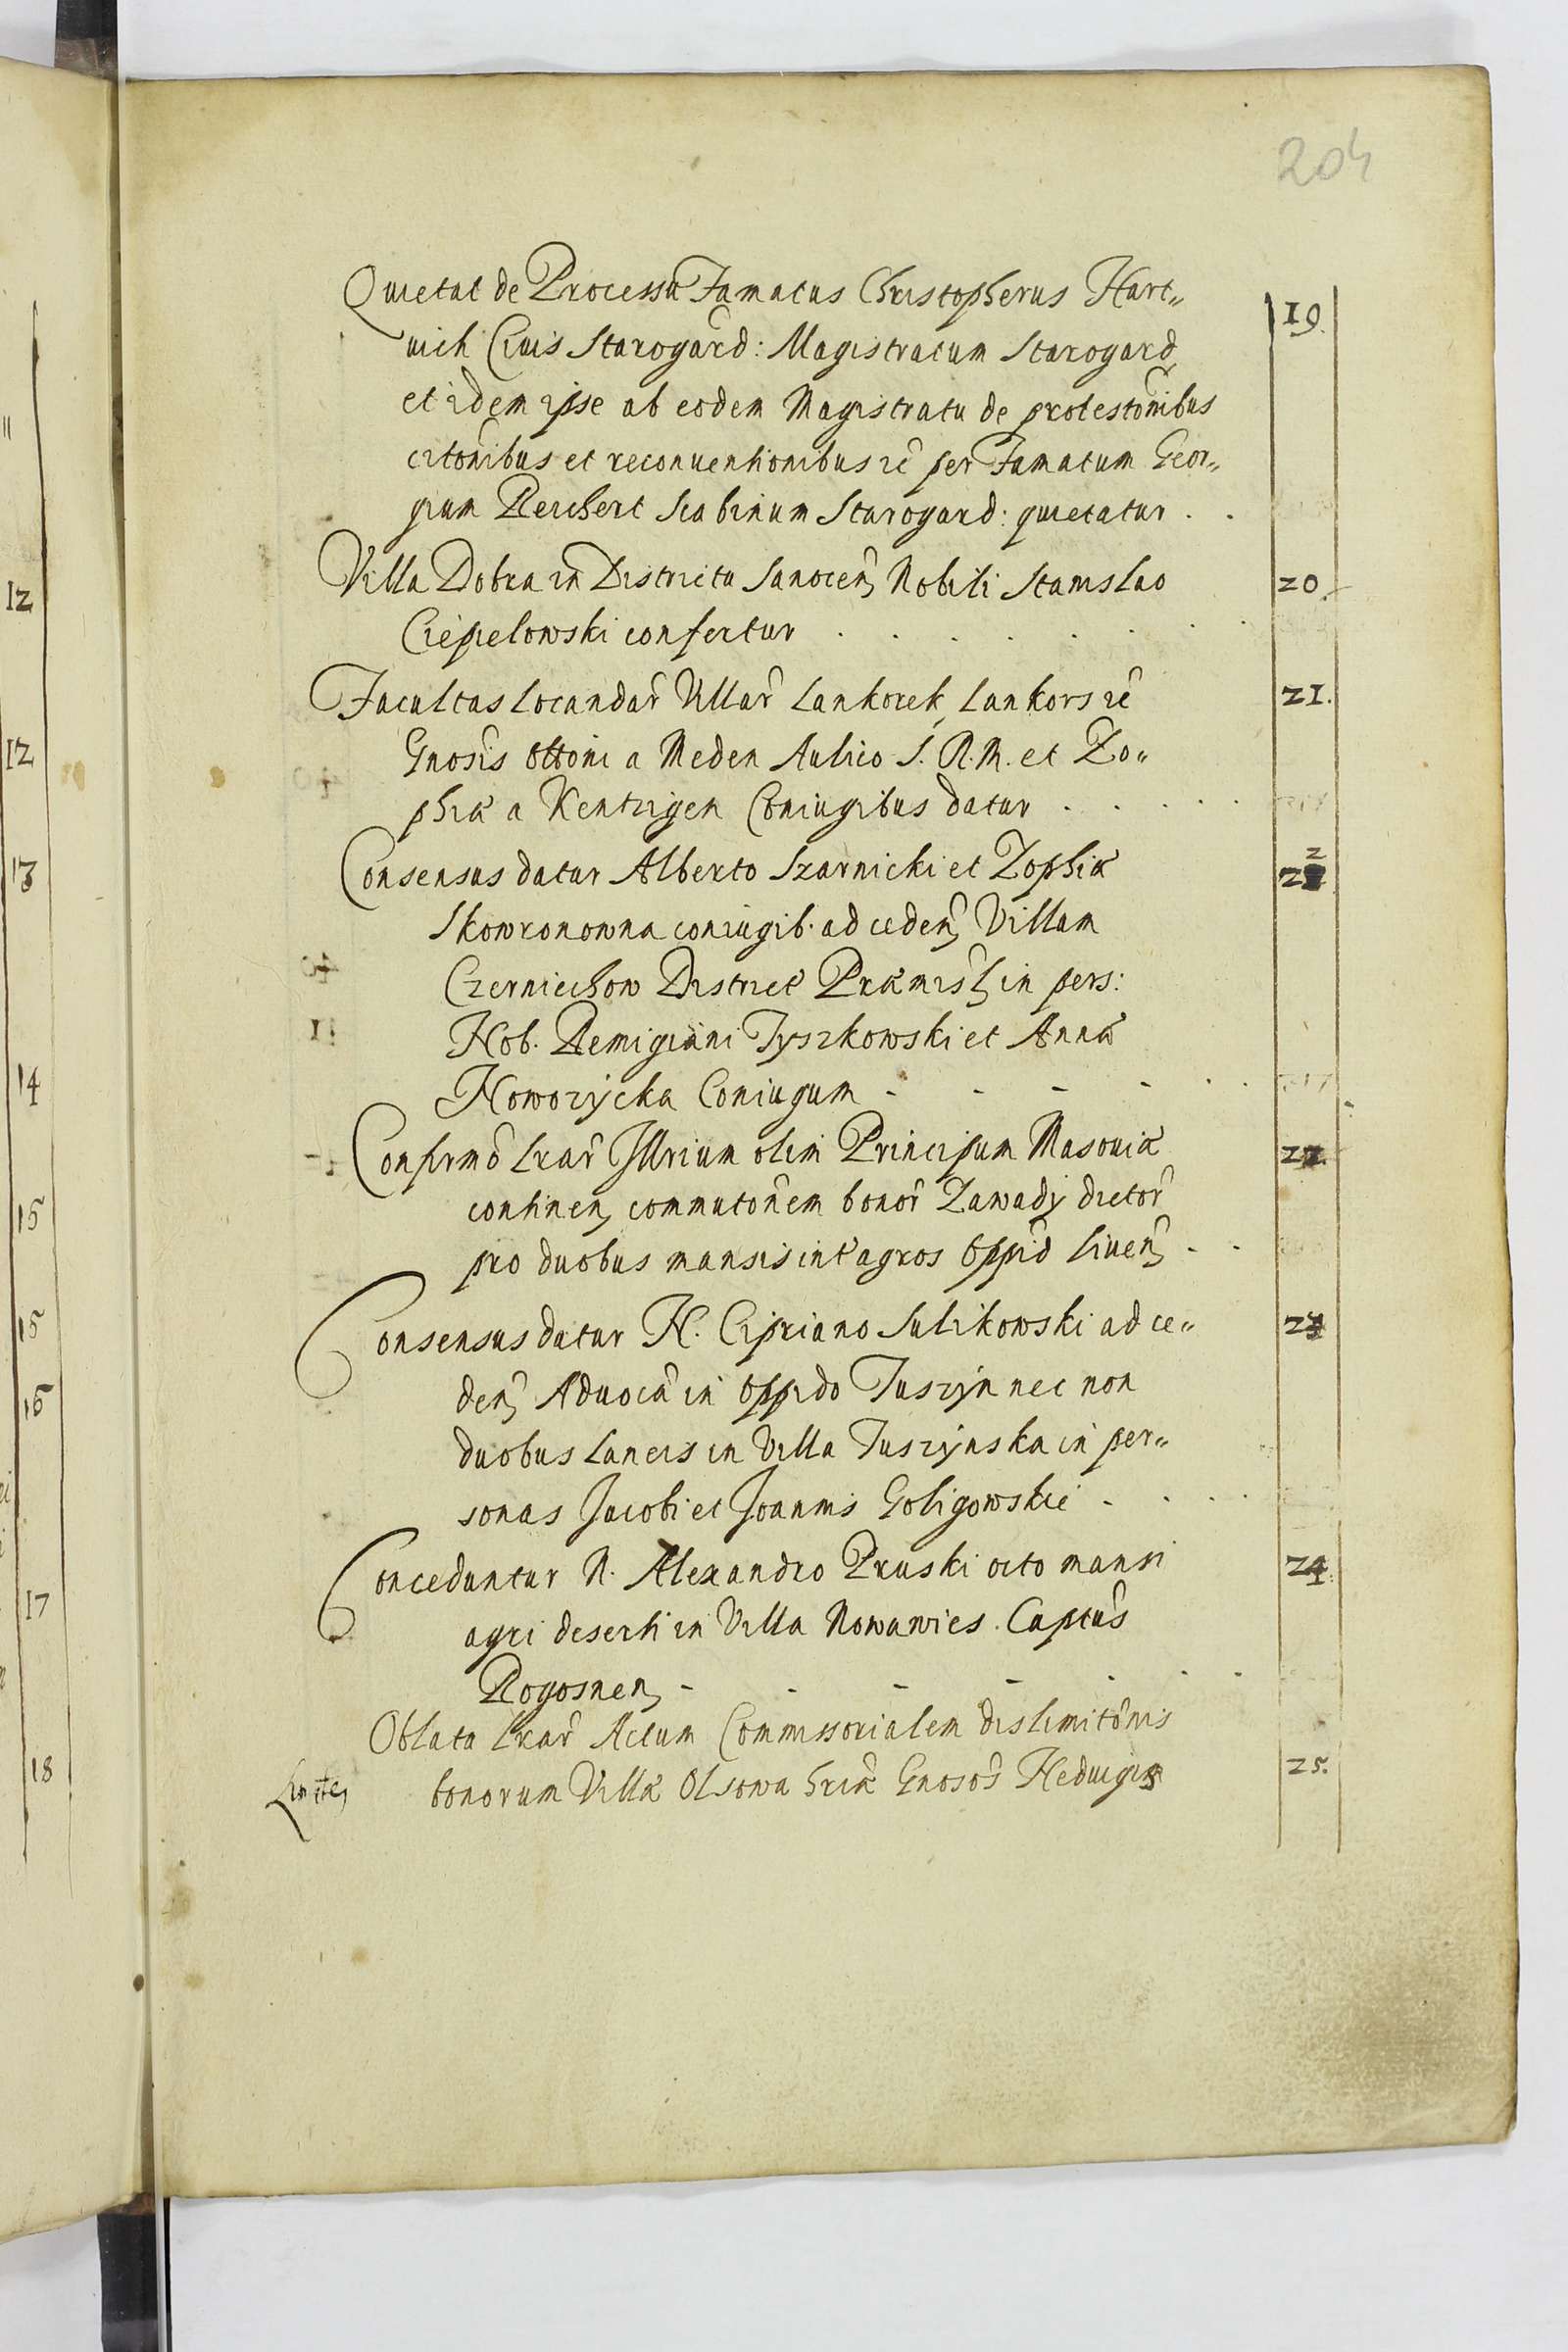 204
Quietat de Processu Famatus Christopherus Hart„ 19.
uich Ciuis Starogard: Magistratum Starogard
et idem ipse ab eodem Magistratu de protestonibus
citonibus et reconuentionibus rc per Famatum Geor„
gium Reichert Scabinum Starogard: quietatur . .
Villa Dobra in Districtu Sanocen Nobili Stanislao 20.
Ciepielowski confertur . . . . . . . .
Facultas locandar Villar Lankorek, Lankors rc 21.
Gnosis Ottoni a Meden Aulico S. R. M. et Zo„
phiæ a Kentzigen Coniugibus datur . . . . .
Consensus datur Alberto Szarnicki et Zophiæ 22
Skowronowna coniugib. ad ceden Villam
Czerniechow District Præmisl in pers:
Nob. Remigiani Tyszkowski et Annæ
Nowozycka Coniugum - - - - . .
Confirmo Lrar Illrium olim Principum Masouiæ 22.
continen commutonem bonor Zawady dictor
pro duobus mansis int agros Oppid Liuen - .
Consensus datur N. Cipriano Sulikowski ad ce„ 23
den Aduoca in Oppido Tuszyn nec non
duobus Laneis in Villa Tuszynska in per„
sonas Jacobi et Joannis Goligowskie - . . .
Conceduntur N. Alexandro Pruski octo mansi 24.
agri deserti in Villa Nowawies. Captus
Rogosnen - - - - - . .
Oblata Lrar Actum Commissorialem dislimitonis
bonorum Villæ Olsowa hriæ Gnosos Heduigis 25.
Limites
12
12
13
14
15
15
16
17
18